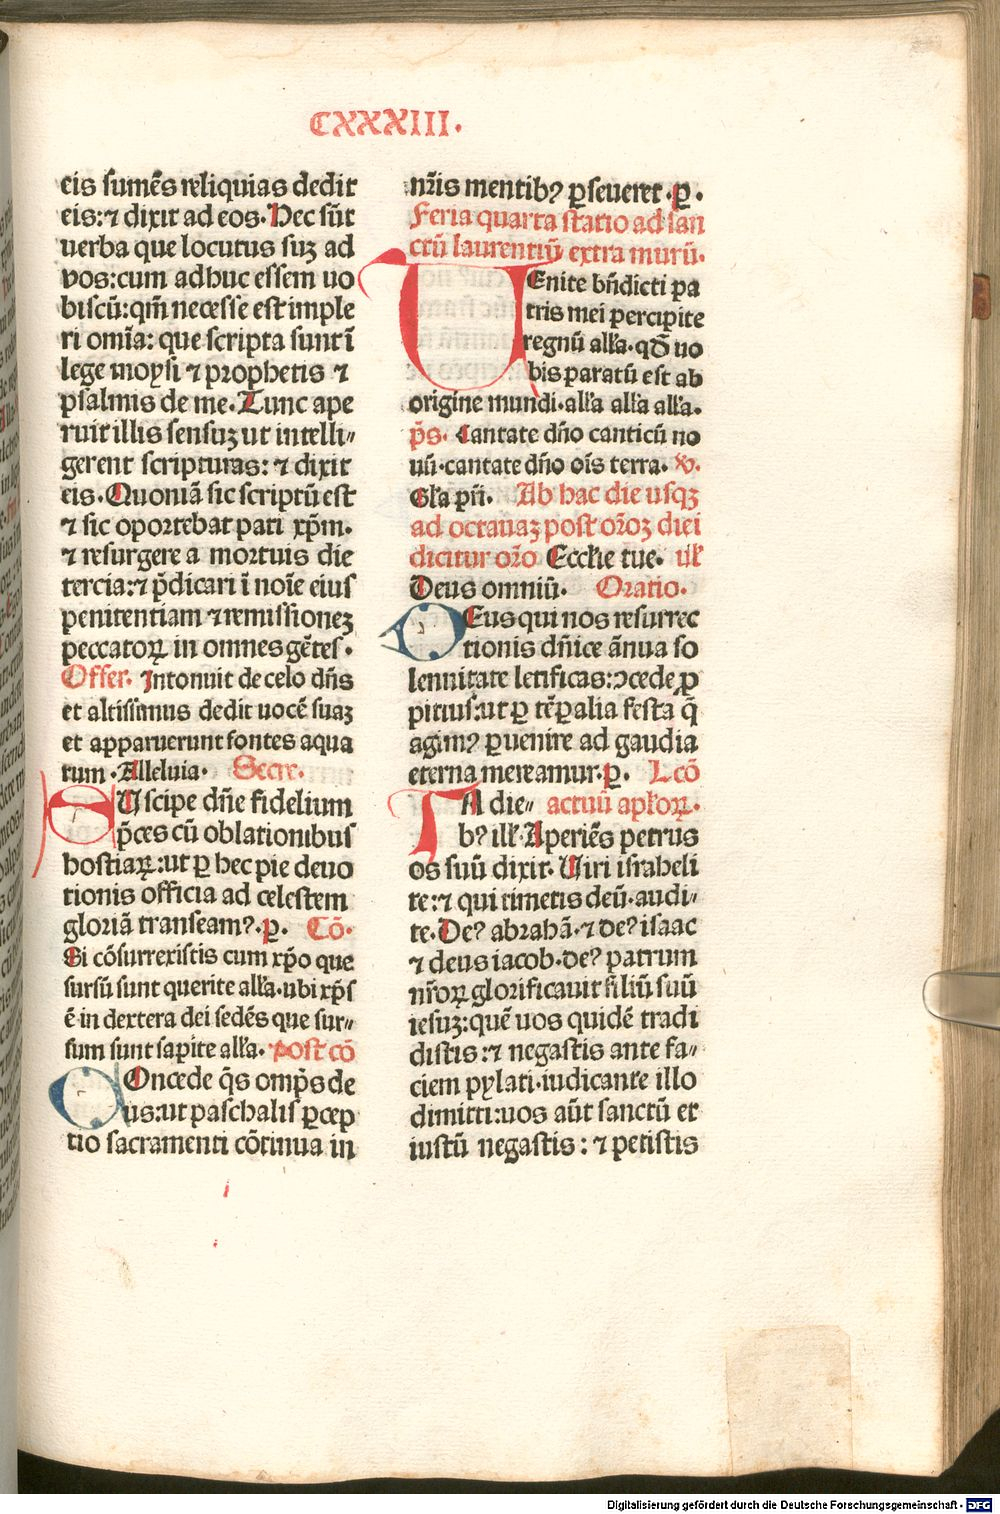 CXXXIII.
eis sumẽs reliquias dedit
eis:⁊ dixit ad eos.Hec sũt
uerba que locutus suʒ ad
vos:cum adhuc essem uo
biscũ:qm̃ necesse est imple
ri om̃ia: que scripta sunt ĩ
lege moysi ⁊ prophetis ⁊
psalmis de me.Tunc ape
ruit illis sensuʒ ut intelli⸗
gerent scripturas: ⁊ dixit
eis.Quoniã sic scriptũ est
⁊ sic oportebat pati xp̃m.
⁊ resurgere a mortuis die
tercia:⁊ p̃dicari ĩ noĩe eius
penitentiam ⁊ remissioneʒ
peccatoꝝ in omnes gẽtes.
Offer. Intonuit de celo dñs
et altissimus dedit uocẽ suaʒ
et apparuerunt fontes aqua
rum.Alleluia. Secr̃.
SUscipe dñe fidelium
p̃ces cũ oblationibus
hostiaꝝ:ut ꝑ hec pie deuo
tionis officia ad celestem
gloriã transeamꝰ.ꝑ. Cõ.
Si cõsurrexistis cum xp̃o que
sursũ sunt querite all'a.ubi xp̃s
ẽ in dextera dei sedẽs que sur⸗
sum sunt sapite all'a. post cõ
COncede q̃s omp̃s de
us:ut paschalis ꝑcep
tio sacramenti cõtinua in
nr̃is mentibꝰ ꝑseueret.ꝑ.
Feria quarta statio ad san
ctũ laurentiũ extra murũ.
UEnite bñdicti pa
tris mei percipite
regnũ all'a.qđ uo
bis paratũ est ab
origine mundi.all'a all'a all'a.
p̃s. Cantate dño canticũ no
uũ.cantate dño oĩs terra. ꝟ.
Gl'a pr̃i. Ab hac die usqꝫ
ad octauaʒ post or̃oʒ diei
dicitur or̃o Eccl'ie tue. ul'
Deus omniũ. Oratio.
DEus qui nos resurrec
tionis dñice ãnua so
lennitate letificas:ↄcede ꝓ
pitius:ut ꝑ tẽꝑalia festa q̃
agimꝰ ꝑuenire ad gaudia
eterna mereamur.ꝑ. L cõ
IA die⸗ actuũ apl'oꝝ.
bꝰ ill'.Aperiẽs petrus
os suũ dixit.Uiri israheli
te:⁊ qui timetis deũ.audi⸗
te.Deꝰ abrahã.⁊ deꝰ isaac
⁊ deus iacob.deꝰ patrum
nr̃oꝝ glorificauit filiũ suũ
iesuʒ:quẽ uos quidẽ tradi
distis:⁊ negastis ante fa⸗
ciem pylati.iudicante illo
dimitti:uos aũt sanctũ et
iustũ negastis: ⁊ petistis
Digitalisierung gefördert durch die Deutsche Forschungsgemeinschaft - DFG